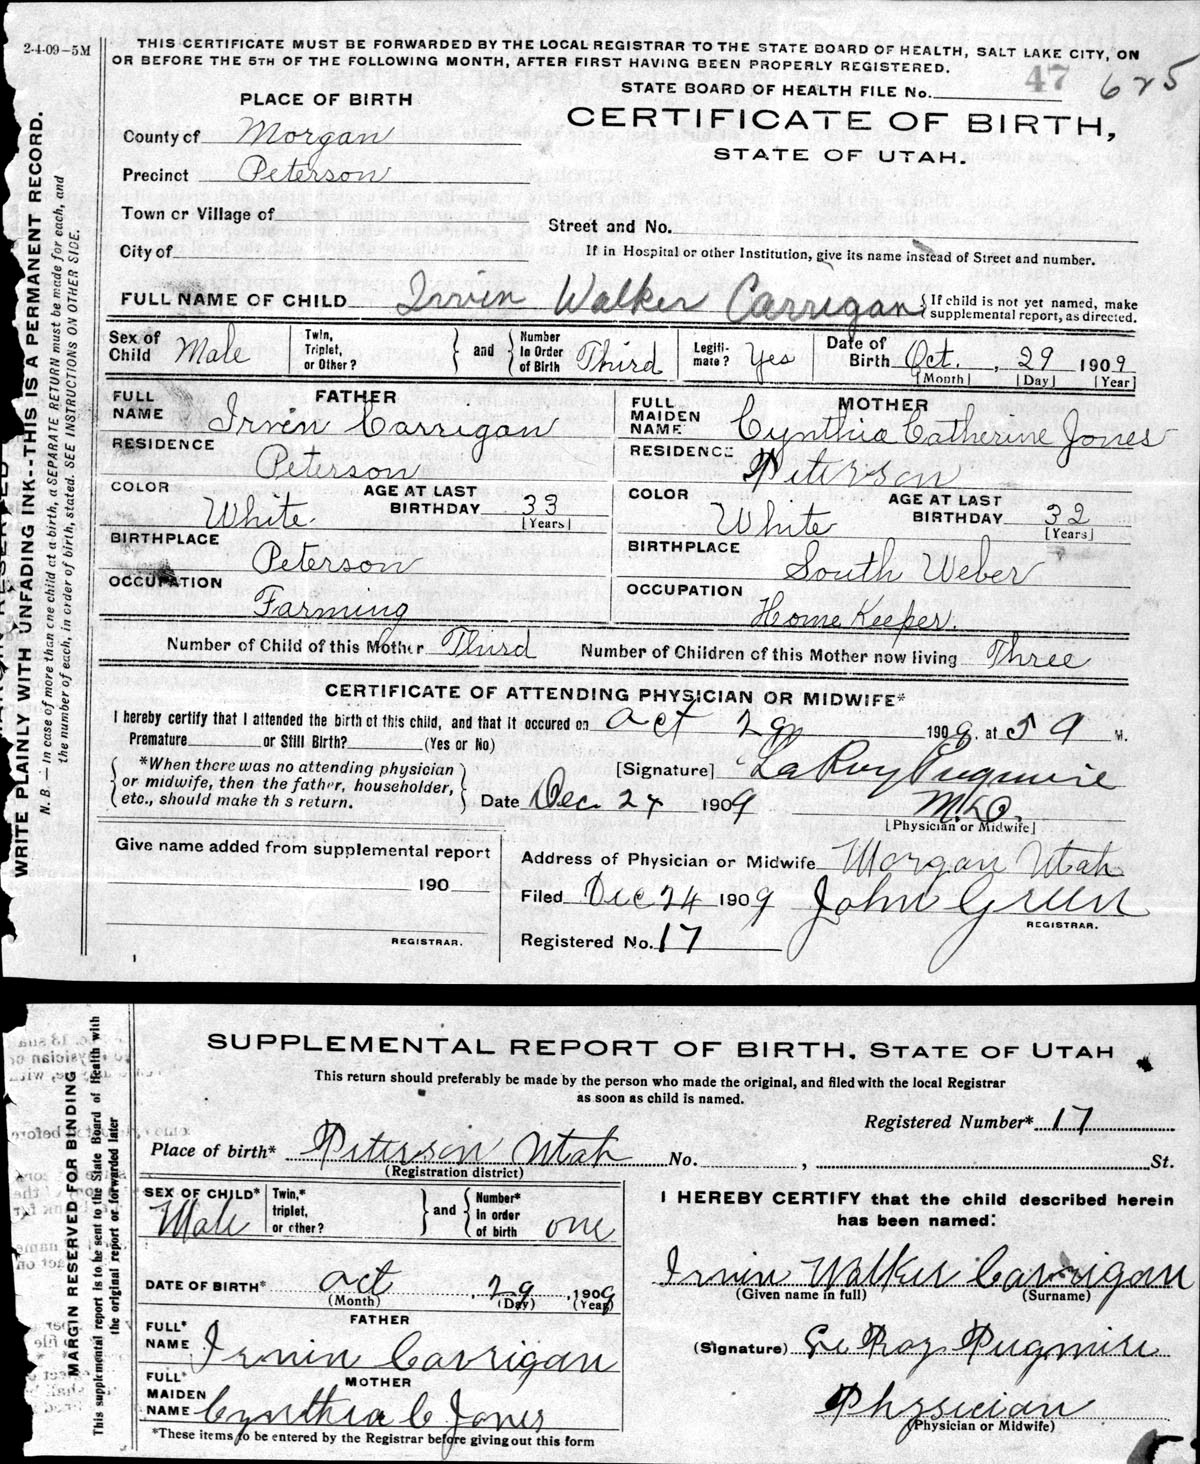 2-4-09-5M
THIS CERTIFICATE MUST BE FORWARDED BY THE LOCAL REGISTRAR TO THE STATE BOARD OF HEALTH, SALT LAKE CITY, ON
OR BEFORE THE 5TH OF THE FOLLOWING MONTH, AFTER FIRST HAVING BEEN PROPERLY REGISTERED.
STATE BOARD OF HEALTH FILE No. 47 625
PLACE OF BIRTH
CERTIFICATE OF BIRTH,
STATE OF UTAH.
County of Morgan
Precinct Peterson
Town or Village of
Street and No.
City of
If in Hospital or other Institution, give its name instead of Street and number.
FULL NAME OF CHILD Irvin Walker Carrigan { If child is not yet named, make supplemental report, as directed.
Sex of Child Male Twin, Triplet, or Other? } and { Number In Order of Birth Third Legiti-mate? Yes Date of Birth Oct. , 29 1909
[Month] [Day] [Year]
FATHER
FULL NAME Irvin Carrigan
RESIDENCE Peterson
COLOR White AGE AT LAST BIRTHDAY 33
[Years]
BIRTHPLACE Peterson
OCCUPATION Farming
MOTHER
FULL MAIDEN NAME Cynthia Catherine Jones
RESIDENCE Peterson
COLOR White AGE AT LAST BIRTHDAY 32
[Years]
BIRTHPLACE South Weber
OCCUPATION Home Keeper.
Number of Child of this Mother Third Number of Children of this Mother now living Three
CERTIFICATE OF ATTENDING PHYSICIAN OR MIDWIFE*
I hereby certify that I attended the birth of this child, and that it occured on Oct 29 1909, at 5 9 M.
Premature or Still Birth? (Yes or No)
{ *When there was no attending physician
or midwife, then the father, householder,
etc., should make th s return. }
[Signature] LaRoy Pugmire
Date Dec. 24 1909 M.D.
[Physician or Midwife]
Give name added from supplemental report
190
REGISTRAR.
Address of Physician or Midwife Morgan Utah
Filed Dec 24 1909 John Green
REGISTRAR.
Registered No. 17
WRITE PLAINLY WITH UNFADING INK--THIS IS A PERMANENT RECORD.
N. B.—In case of more than one child at a birth, a SEPARATE RETURN must be made for each, and
the number of each, in order of birth, stated. SEE INSTRUCTIONS ON OTHER SIDE.
SUPPLEMENTAL REPORT OF BIRTH, STATE OF UTAH
This return should preferably be made by the person who made the original, and filed with the local Registrar
as soon as child is named.
Registered Number* 17
Place of birth* Peterson Utah No. , St.
(Registration district)
SEX OF CHILD* Male Twin,* triplet, or other? } and { Number* In order of birth one
DATE OF BIRTH* Oct , 29 , 1909
(Month) (Day) (Year)
FATHER
FULL* NAME Irvin Carrigan
MOTHER
FULL* MAIDEN NAME Cynthia C Jones
*These items to be entered by the Registrar before giving out this form
I HEREBY CERTIFY that the child described herein
has been named:
Irvin Walker Carrigan
(Given name in full) (Surname)
(Signature) Le Roy Pugmire
Physician
(Physician or Midwife)
MARGIN RESERVED FOR BINDING
This supplemental report is to be sent to the State Board of Health with
the original report or forwarded later